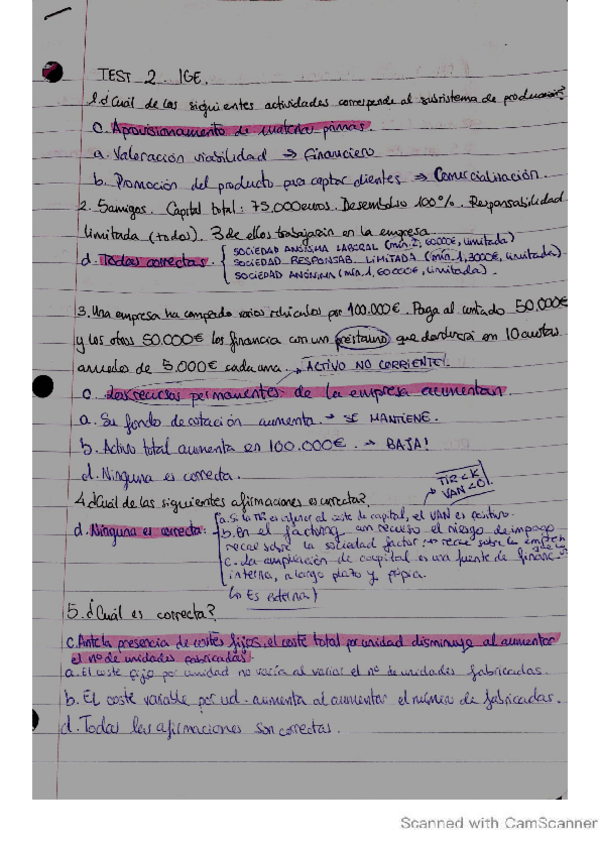 TEST 2. IGE.
1. ¿Cuál de las siguientes actividades corresponde al subsistema de producción?
c. Aprovisionamiento de materias primas.
a. Valoración viabilidad → Financiero
b. Promoción del producto para captar clientes → Comercialización.
2. 5 amigos. Capital total: 75.000 euros. Desembolso 100%. Responsabilidad
limitada (todos). 3 de ellos trabajarán en la empresa
SOCIEDAD ANÓNIMA LABORAL (mín. 2, 60000€, limitada)
d. Todas correctas. SOCIEDAD RESPONSAB. LIMITADA (mín. 1, 3000€, limitada)
SOCIEDAD ANÓNIMA (mín. 1, 60000€, limitada).
3. Una empresa ha comprado varios vehículos por 100.000€. Paga al contado 50.000€
y los otros 50.000€ los financia con un préstamo que devolverá en 10 cuotas
anuales de 5.000€ cada una. ACTIVO NO CORRIENTE!
c. Los recursos permanentes de la empresa aumentan.
a. Su fondo de rotación aumenta. → SE MANTIENE.
b. Activo total aumenta en 100.000€. → BAJA!
d. Ninguna es correcta.
TIR<K
VAN<0!
4. ¿Cuál de las siguientes afirmaciones es correcta?
a. Si la TIR es inferior al coste de capital, el VAN es positivo.
d. Ninguna es correcta: b. En el factoring con recurso el riesgo de impago
recae sobre la sociedad factor → recae sobre la
c. La ampliación de capital es una fuente de financ
interna, a largo plazo y propia.
↳ Es externa!
5. ¿Cuál es correcta?
c. Ante la presencia de costes fijos, el coste total por unidad disminuye al aumentar
el nº de unidades fabricadas.
a. El coste fijo por unidad no varía al variar el nº de unidades fabricadas.
b. El coste variable por ud. aumenta al aumentar el número de fabricadas.
d. Todas las afirmaciones son correctas.
Scanned with CamScanner